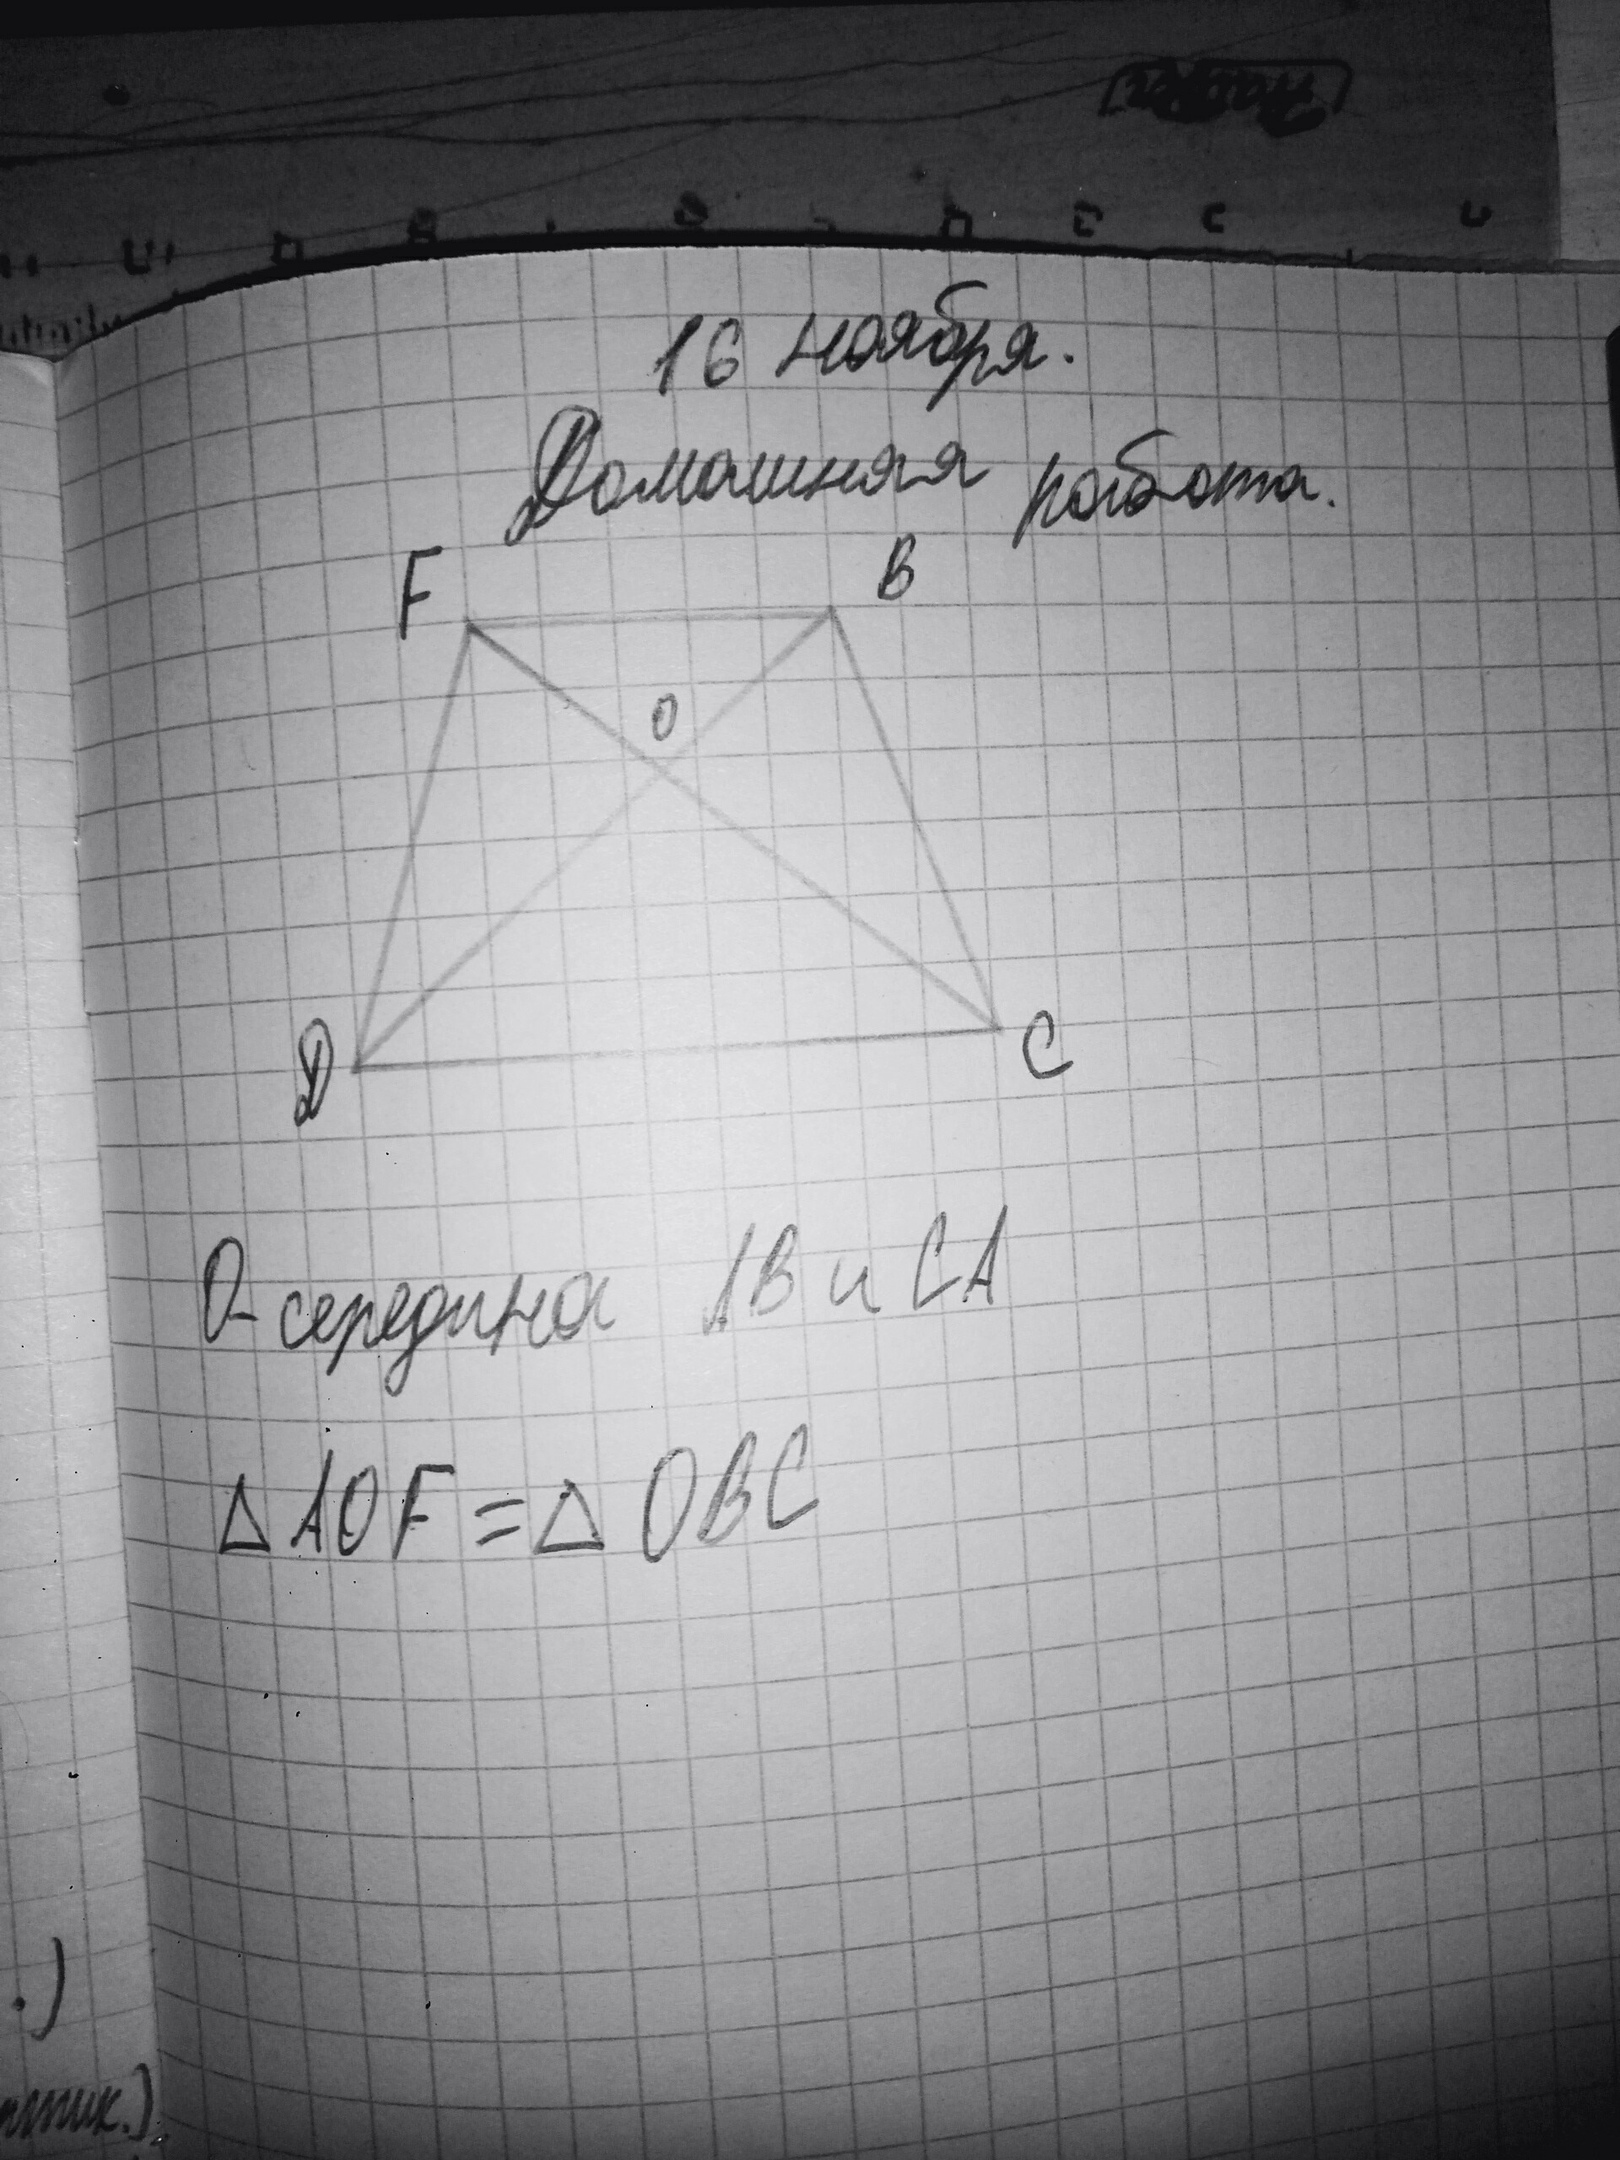 16 ноября.
Домашняя работа.
F B
O
D C
O-середина AB и CA
△AOF=△OBC
.)